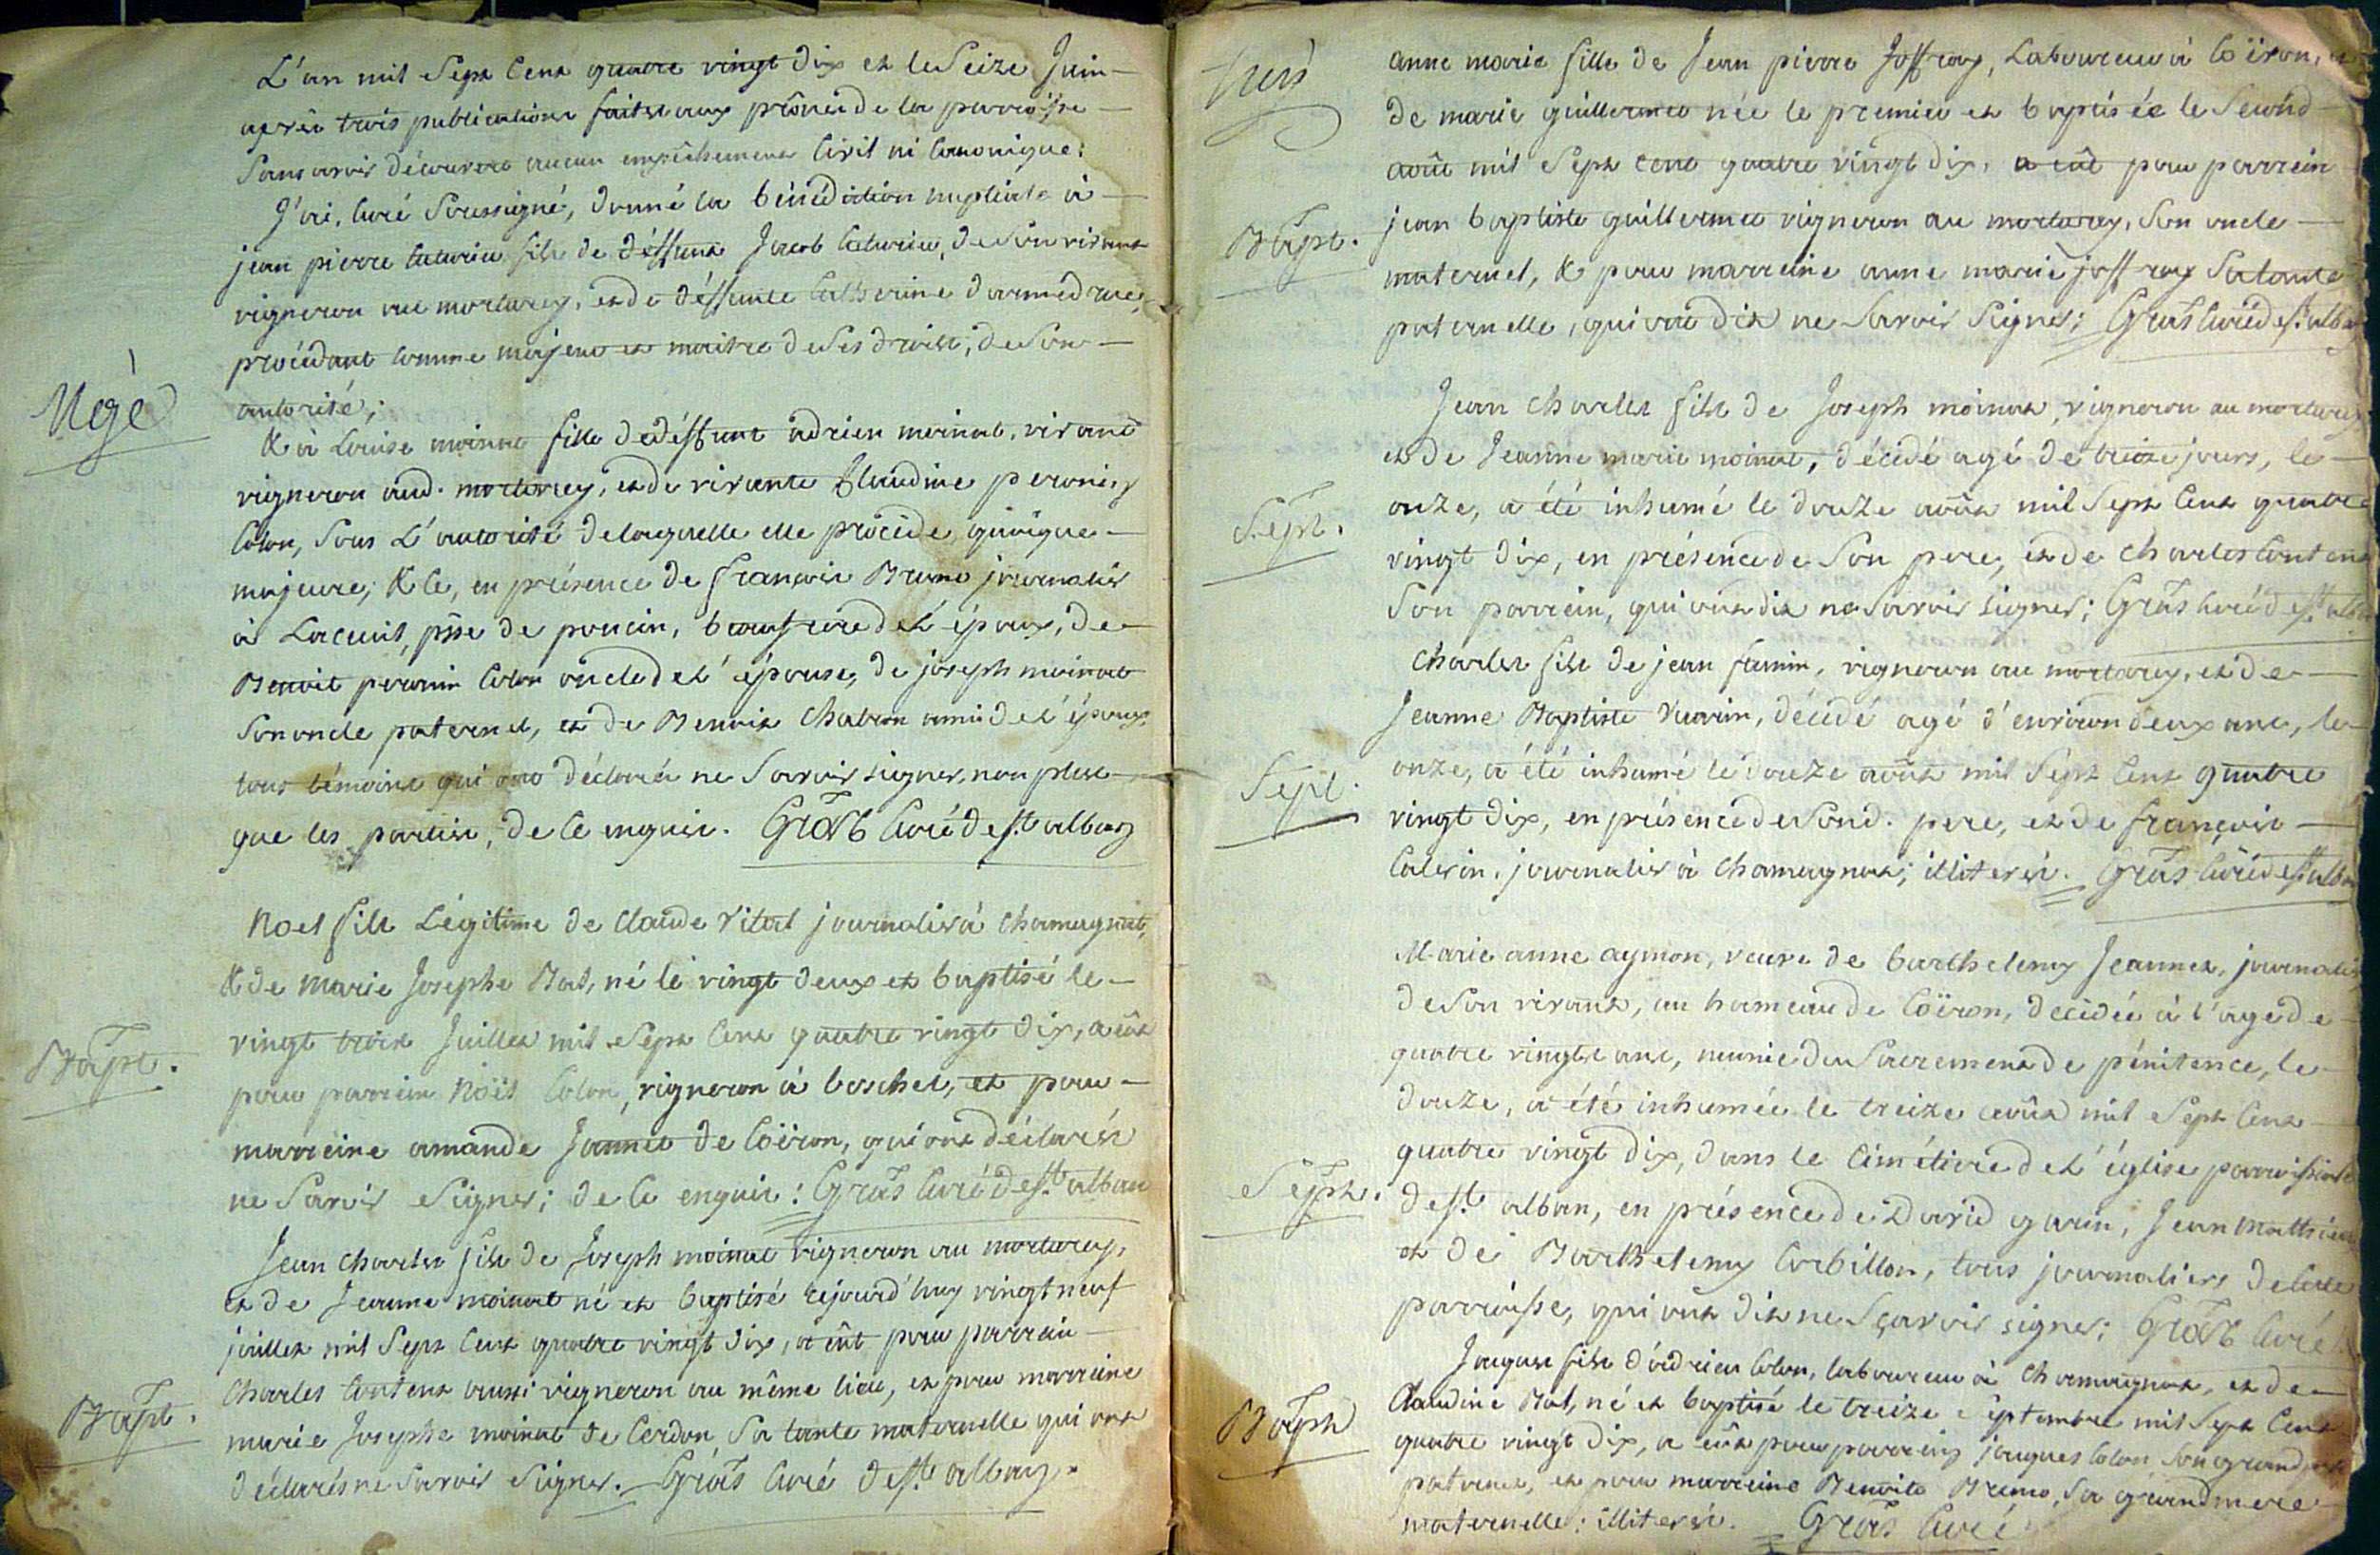 L'an mil Sept Cent quatre vingt Dix et le Seize Juin
après trois publications faites aux prônes de la parroisse
Sans avoir découvert aucun empêchement Civil ni Canonique;
J'ai, Curé Soussigné, donné la bénédiction nuptiale à
jean pierre fils de déffunt Jacob de son vivant
vigneron au mortarey, et de déffunte Catherine
procédant comme majeur et maitre de ses droits, de son
autorité;
Mgè
& à Louise moinat fille de déffunt adrien moinat, vivant
vigneron aud. mortarey, et de vivante Claudine peronin,
Colon, Sous L'autorité de laquelle elle procède, quoique
majeure; & ce, en présence de françois Bruno journalier
à Lacuit, psse de poncin, beaufrere de L'époux, de
Benoit peronin Colon oncle de L'épouse, de joseph moinat
Son oncle paternel, et de Benoit Chabron ami de L'époux,
tous témoins qui ont déclarés ne Savoir signer, non plus
que les parties, de ce enquis. Gras Curé de St. alban
Noel fils Légitime de Claude Vitat journalier à Chamagnat,
& de Marie Josephe Bat, né le vingt deux et baptisé le
Bapt.
vingt trois Juillet mil Sept Cent quatre vingt Dix, a eût
pour parrein Noël Colon, vigneron à boschet, et pour
marreine amande Jannet de Coïron, qui ont déclarés
ne Savoir Signer; de ce enquis: Gras Curé de St. alban
Jean Charles fils de Joseph moinat vigneron au mortarey,
et de Jeanne moinat né et baptisé cejourd'huy vingt neuf
juillet mil Sept Cent quatre vingt Dix, a eût pour parrein
Bapt.
Charles Content aussi vigneron au même lieu, et pour marreine
marie Josephe moinat de Cerdon, Sa tante maternelle qui ont
déclarés ne Savoir Signer. Gras Curé de St. alban.
anne marie fille de Jean pierre Joffray, Laboureur à Coïron, et
de marie guillermet née le premier et baptisée le Second
août mil Sept Cent quatre vingt dix, a eût pour parrein
Bapt.
jean baptiste guillermet vigneron au mortarey, Son oncle
maternel, & pour marreine anne marie joffray Sa tante
paternelle, qui ont dit ne Savoir Signer; Gras Curé de St. alban
Jean Charles fils de Joseph moinat, vigneron au mortarey
et de Jeanne marie moinat, décédé agé de treize jours, le
Sept.
onze, a été inhumé le douze août mil Sept Cent quatre
vingt Dix, en présence de Son pere, et de Charles Content
Son parrein, qui ont dit ne Savoir signer; Gras Curé de St. alban
Charles fils de jean famin, vigneron au mortarey, et de
Jeanne Baptiste Vuarin, décédé agé d'environ deux ans, le
Sept.
onze, a été inhumé le douze août mil Sept Cent quatre
vingt Dix, en présence de Sond. pere, et de françois
journalier à Chamagnat; illiterés. Gras Curé de St. alban
Marie anne aymon, veuve de barthelemy Jeannet, journalier
de Son vivant, au hameau de Coïron, décédée à l'age de
quatre vingts ans, munie du Sacrement de pénitence, le
douze, a été inhumée le treize août mil Sept Cent
quatre vingt Dix, dans le Cimétiere de L'église parroissiale
Sept.
de St. alban, en présence de David Jean Matthieu
et de Barthelemy Corbillon, tous journaliers de cette
parroisse, qui ont dit ne Sçavoir signer; Gras Curé
Jaques fils d'adrien Colon, laboureur à Chamagnat, et de
Bapt
Claudine Bat, né et baptisé le treize Septembre mil Sept Cent
quatre vingt Dix, a eût pour parrein jaques Colon Son grand pere
paternel, et pour marreine Benoite Bruno, Sa grand mere
maternelle: illiterés. Gras Curé